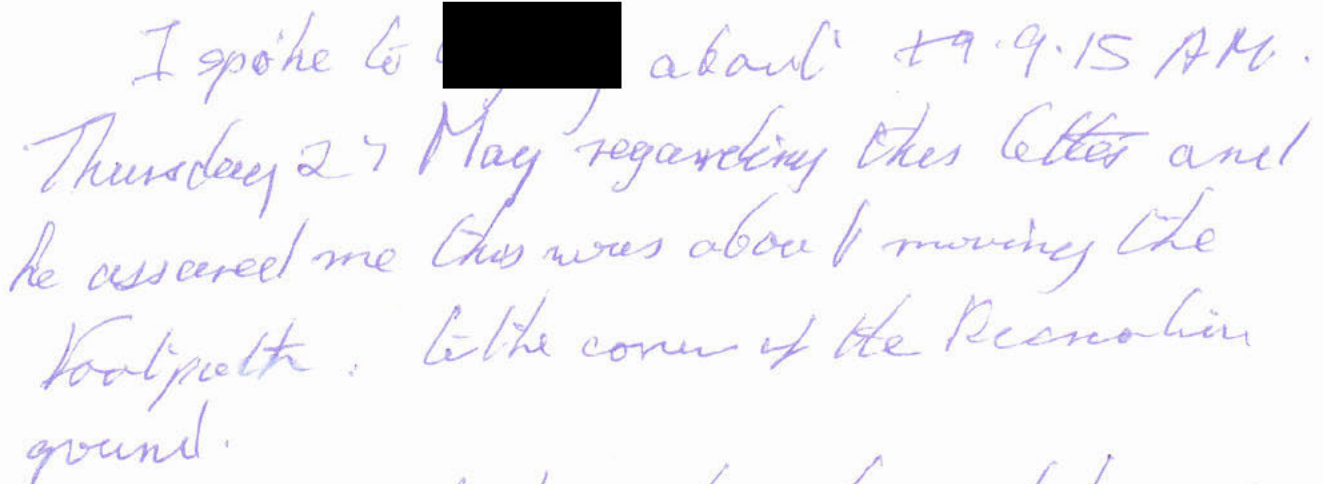 I spoke to about 9.15 AM.
Thursday 27 May regarding this letter and
he assured me this was about moving the
Footpath. to the corner of the Recreation
ground.